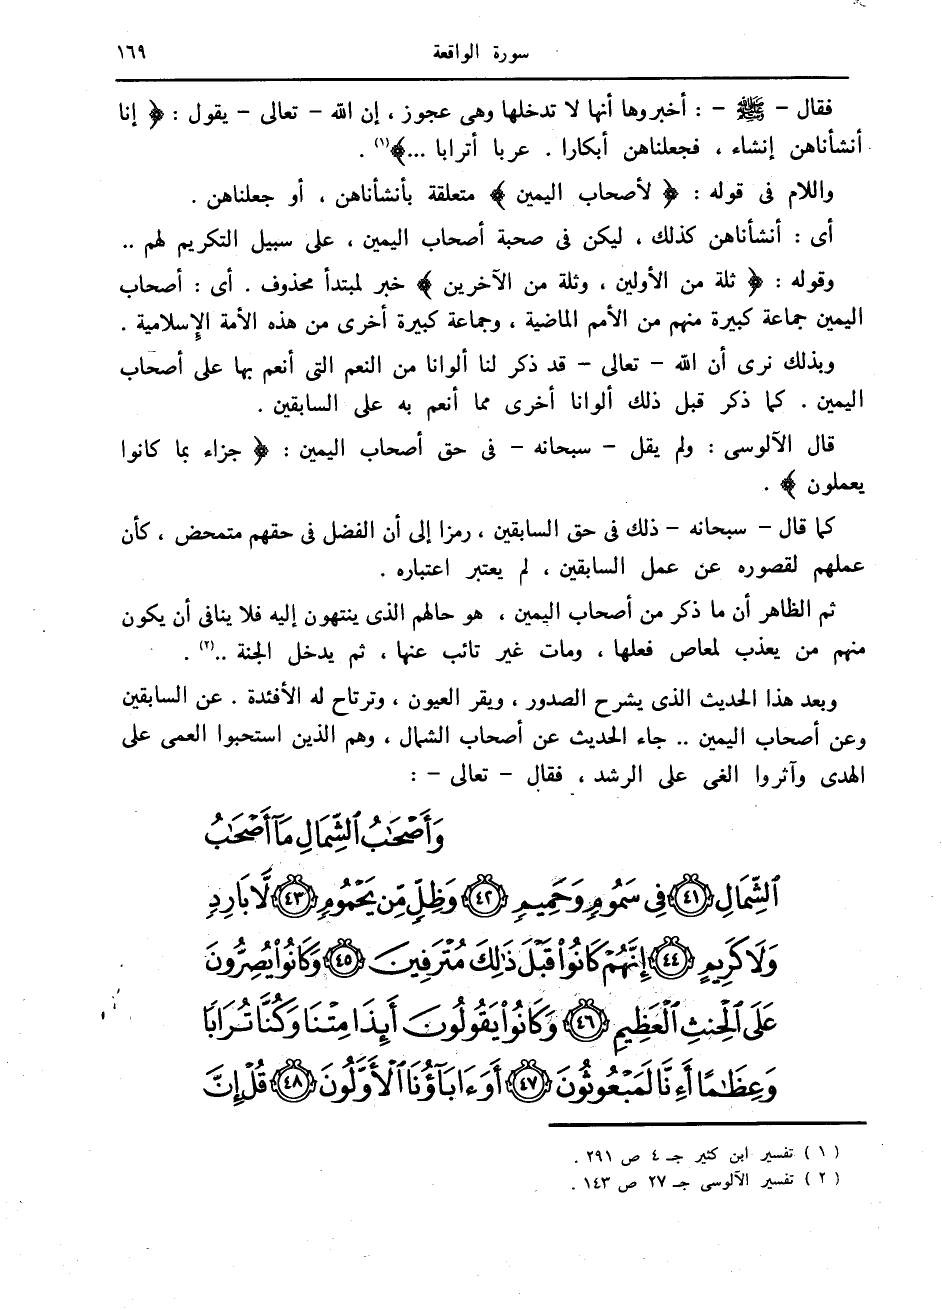 سورة الواقعة ١٦٩
فقال – ﷺ – : أخبروها أنها لا تدخلها وهى عجوز ، إن الله – تعالى – يقول : ﴿ إنا
أنشأناهن إنشاء ، فجعلناهن أبكارا . عربا أترابا ...﴾(١) .
واللام فى قوله : ﴿ لأصحاب اليمين ﴾ متعلقة بأنشأناهن ، أو جعلناهن .
أى : أنشأناهن كذلك ، ليكن فى صحبة أصحاب اليمين ، على سبيل التكريم لهم ..
وقوله : ﴿ ثلة من الأولين ، وثلة من الآخرين ﴾ خبر لمبتدأ محذوف . أى : أصحاب
اليمين جماعة كبيرة منهم من الأمم الماضية ، وجماعة كبيرة أخرى من هذه الأمة الإسلامية .
وبذلك نرى أن الله – تعالى – قد ذكر لنا ألوانا من النعم التى أنعم بها على أصحاب
اليمين . كما ذكر قبل ذلك ألوانا أخرى مما أنعم به على السابقين .
قال الآلوسى : ولم يقل – سبحانه – فى حق أصحاب اليمين : ﴿ جزاء بما كانوا
يعملون ﴾ .
كما قال – سبحانه – ذلك فى حق السابقين ، رمزا إلى أن الفضل فى حقهم متمحض ، كأن
عملهم لقصوره عن عمل السابقين ، لم يعتبر اعتباره .
ثم الظاهر أن ما ذكر من أصحاب اليمين ، هو حالهم الذى ينتهون إليه فلا ينافى أن يكون
منهم من يعذب لمعاص فعلها ، ومات غير تائب عنها ، ثم يدخل الجنة ..(٢) .
وبعد هذا الحديث الذى يشرح الصدور ، ويقر العيون ، وترتاح له الأفئدة . عن السابقين
وعن أصحاب اليمين .. جاء الحديث عن أصحاب الشمال ، وهم الذين استحبوا العمى على
الهدى وآثروا الغى على الرشد ، فقال – تعالى – :
وَأَصْحَٰبُ ٱلشِّمَالِ مَآ أَصْحَٰبُ
ٱلشِّمَالِ ٤١ فِى سَمُومٍ وَحَمِيمٍ ٤٢ وَظِلٍّ مِّن يَحْمُومٍ ٤٣ لَّا بَارِدٍ
وَلَا كَرِيمٍ ٤٤ إِنَّهُمْ كَانُوا۟ قَبْلَ ذَٰلِكَ مُتْرَفِينَ ٤٥ وَكَانُوا۟ يُصِرُّونَ
عَلَى ٱلْحِنثِ ٱلْعَظِيمِ ٤٦ وَكَانُوا۟ يَقُولُونَ أَئِذَا مِتْنَا وَكُنَّا تُرَابًا
وَعِظَٰمًا أَءِنَّا لَمَبْعُوثُونَ ٤٧ أَوَءَابَآؤُنَا ٱلْأَوَّلُونَ ٤٨ قُلْ إِنَّ
( ١ ) تفسير ابن كثير جـ ٤ ص ٢٩١ .
( ٢ ) تفسير الآلوسى جـ ٢٧ ص ١٤٣ .